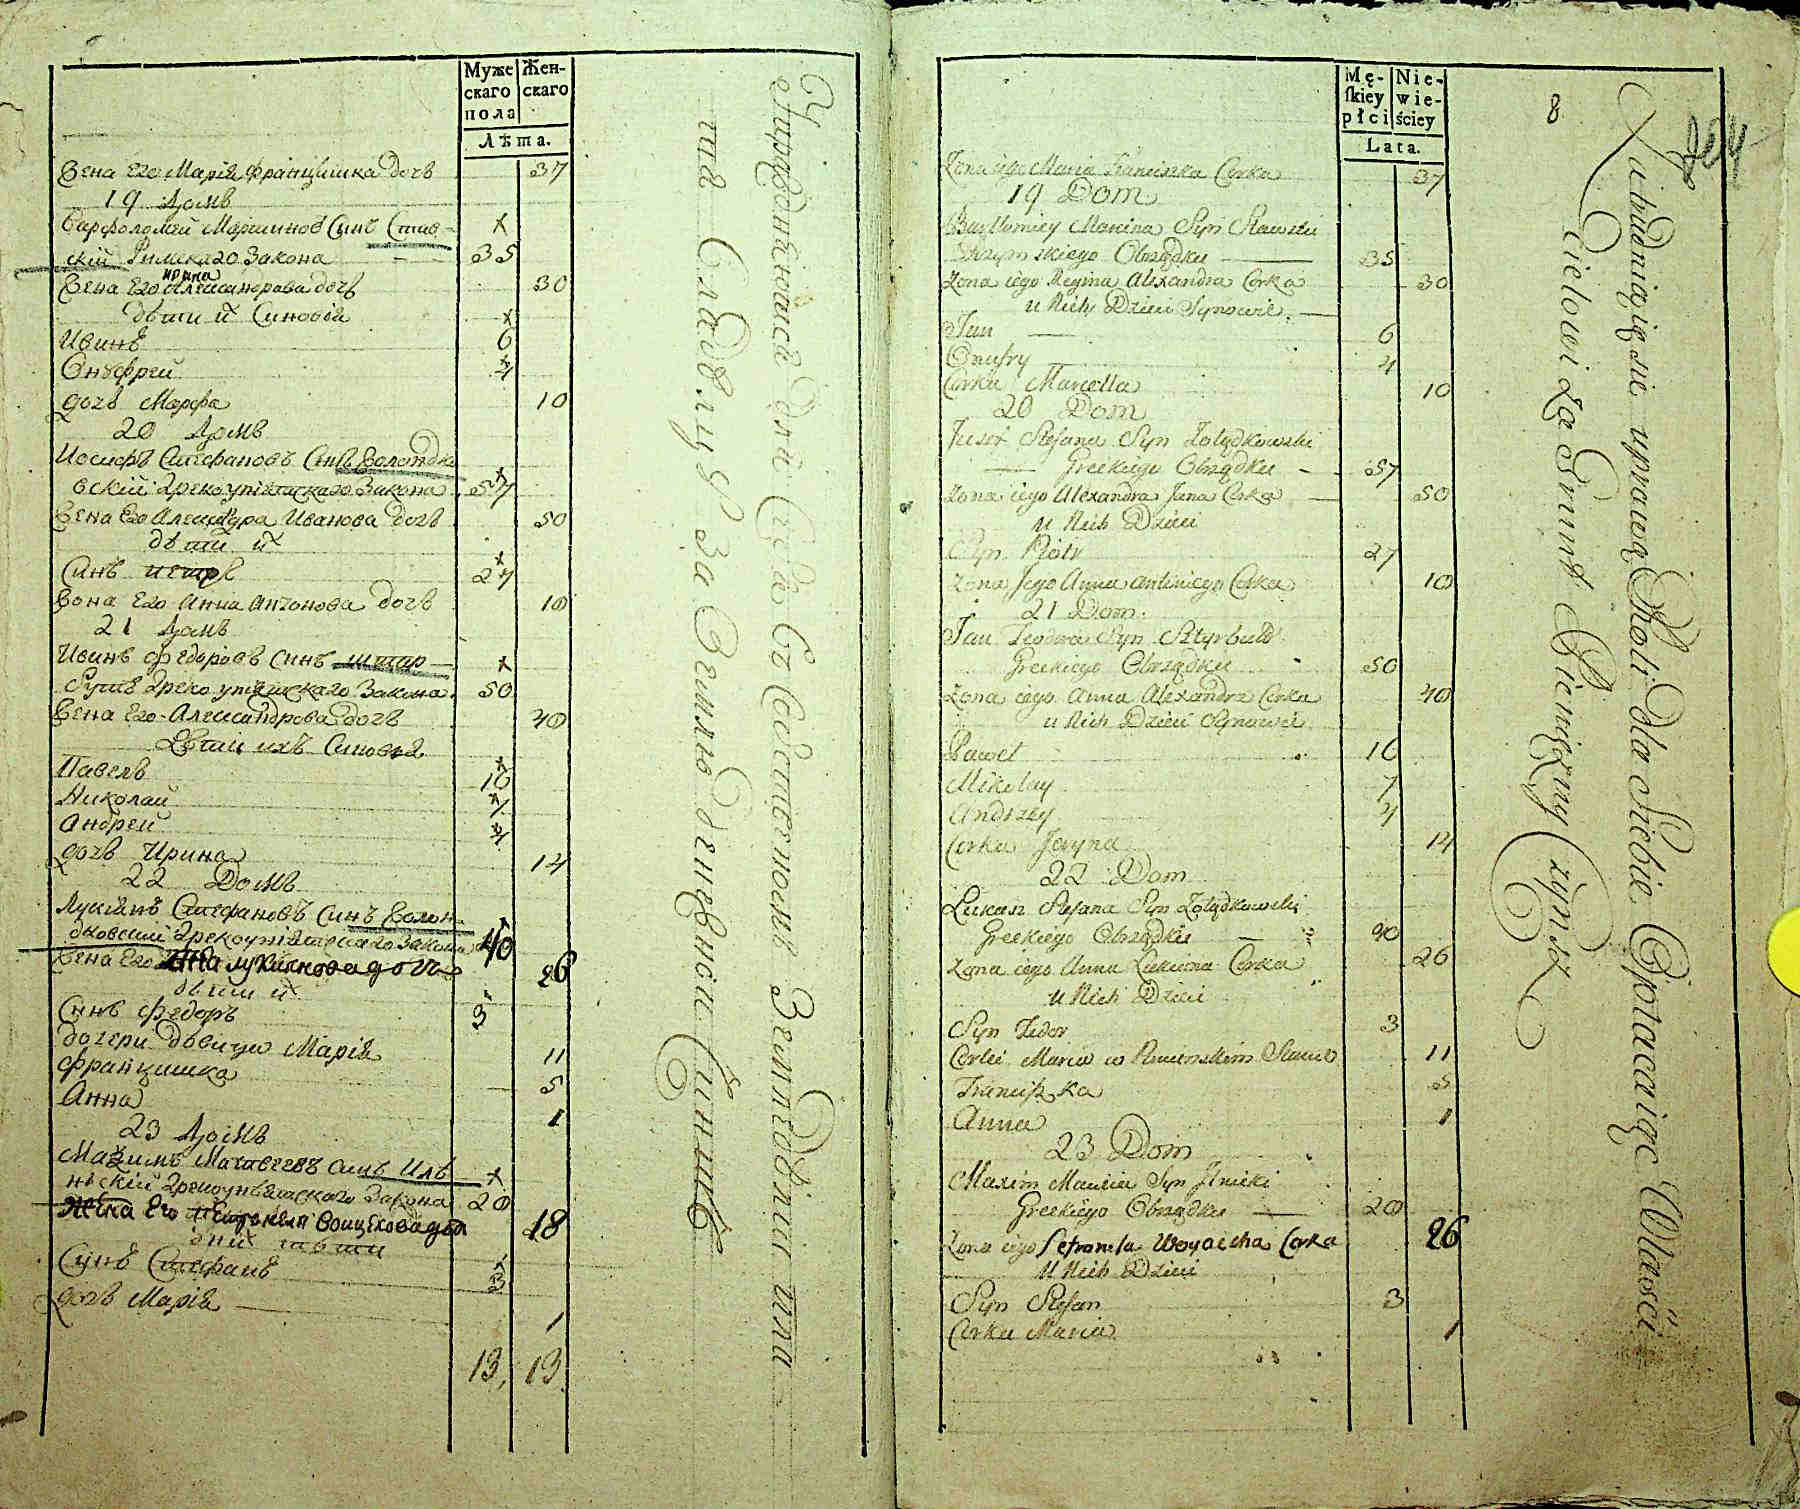 Муже
скаго
пола
Жен-
скаго
Лѣта.
Жена Его Марія францишка дочь 37
19 Домъ
Варфоломей Мартиновъ Синъ Став-
скій Римскаго Закона 35
Жена Его Ирина Александрова дочь 30
дѣти их Синовія
Иванъ 6
Онуфрей 4
дочь Марфа 10
20 Домъ
Иосифъ Стефановъ Синъ Жолондко
вскій Грекоунѣятскаго Закона 57
Жена Его Александра Иванова дочь 50
дѣти их
Синъ петръ 27
Жона Его Анна Антонова дочь 18
21 Домъ
Иванъ федоровъ синъ штир-
Грекоунѣятскаго Закона 50
Жена Его Александрова дочь 40
Дѣти ихъ Синовья
Павелъ 10
Николай 7
Андрей 4
дочь Ирина 14
22 Домъ
Лукіянъ Стефановъ Синъ Жолон-
дковский Грекоунѣятскаго закона 40
Жена Его Анна лукянова дочь 26
дѣти их
Синъ федоръ 3
дочери дѣвици Марія 11
францишка 5
Анна 1
23 Домъ
Маѯимъ Матвеевъ синъ Иль
нѣский Грекоунѣятскаго Закона 20
жена Его петронеля Войцехова доч 18
Синъ Стефанъ 3
дочь Марія 1
13, 13.
Упражняюсѧ для Себѧ Собственнымъ Земледѣліемъ
Владѣлцу За Землю денежной Чиншъ
Mę-
skiey
płci
Nie-
wie-
ściey
Lata.
8
Zona jego Maria Franciszka Corka 37
19 Dom
Bartłomiey Marcina Syn Stawski
Rzymskiego Obrządku 35
Zona iego Regina Alexandra Corka 30
u Nich Dzieci Synowie
Jan 6
Onufry 4
Corka Marcella 10
20 Dom
Jusof Stefana Syn Zołądkowski
Greckiego Obrządku 57
Zona iego Alexandra Jana Corka 50
u Nich Dzieci
Syn Piotr 27
Zona Jego Anna Antoniego Corka 18
21 Dom
Jan Teodora Syn Sztyrbuł
Greckiego Obrządku 50
Zona iego Anna Alexandra Corka 40
u Nich Dzieci Synowie
Paweł 10
Mikolay 7
Andrzey 4
Corka Jeryna 14
22 Dom
Łukasz Stefana Syn Zołądkowski
Greckiego Obrządku 40
Zona iego Anna Łukiana Corka 26
u Nich Dzieci
Syn Fedor 3
Corki Maria w Panienskim Stanie 11
Franciszka 5
Anna 1
23 Dom
Maxim Macieia Syn Jlnicki
Greckiego Obrządku 20
Zona iego Petronela Woyciecha Corka 26
u Nich Dzieci
Syn Stefan 3
Corka Maria 1
Zatrudniaiąsię uprawą Roli dla Siebie Opłacaiąc Właści
Cielowi za Grunt Pieniężny Czynsz